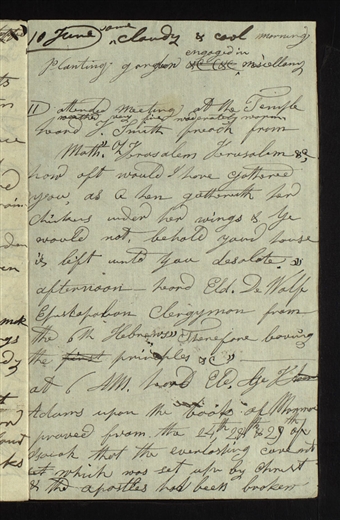 10 June some cloudy & cool morning
planting garden engaged in &C &C miscellany
11 attended meeting at the Temple
weather very fine moderately warm
heard J. Smith preach from
Math. Jerusalem Jerusalem &c
how oft would I have gathered
you, as a hen gathereth her
chickens under her wings & ye
would not, behold your house
is left unto you desolate. "
afternoon heard Eld. De Wolf
Episkopalean Clergyman from
the 6th Hebrews " Therefore leaving
the first principles &C "
at 6 P.M. heard Eld. Ge J.
Adams upon the book of Mormon
proved from the 24th, 28th & 29th of
Isaiah that the everlasting covenant
which was set up by Christ
& the apostles had been broken